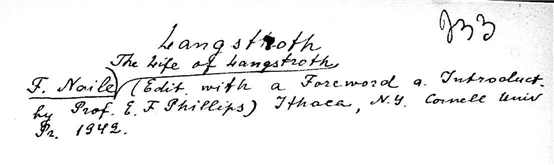 J33
Langstroth
The Life of Langstroth
F. Naile) (Edit. with a Foreword a. Introduct.
by Prof. E. F. Phillips) Ithaca, N.Y. Cornell Univ
Pr. 1942.